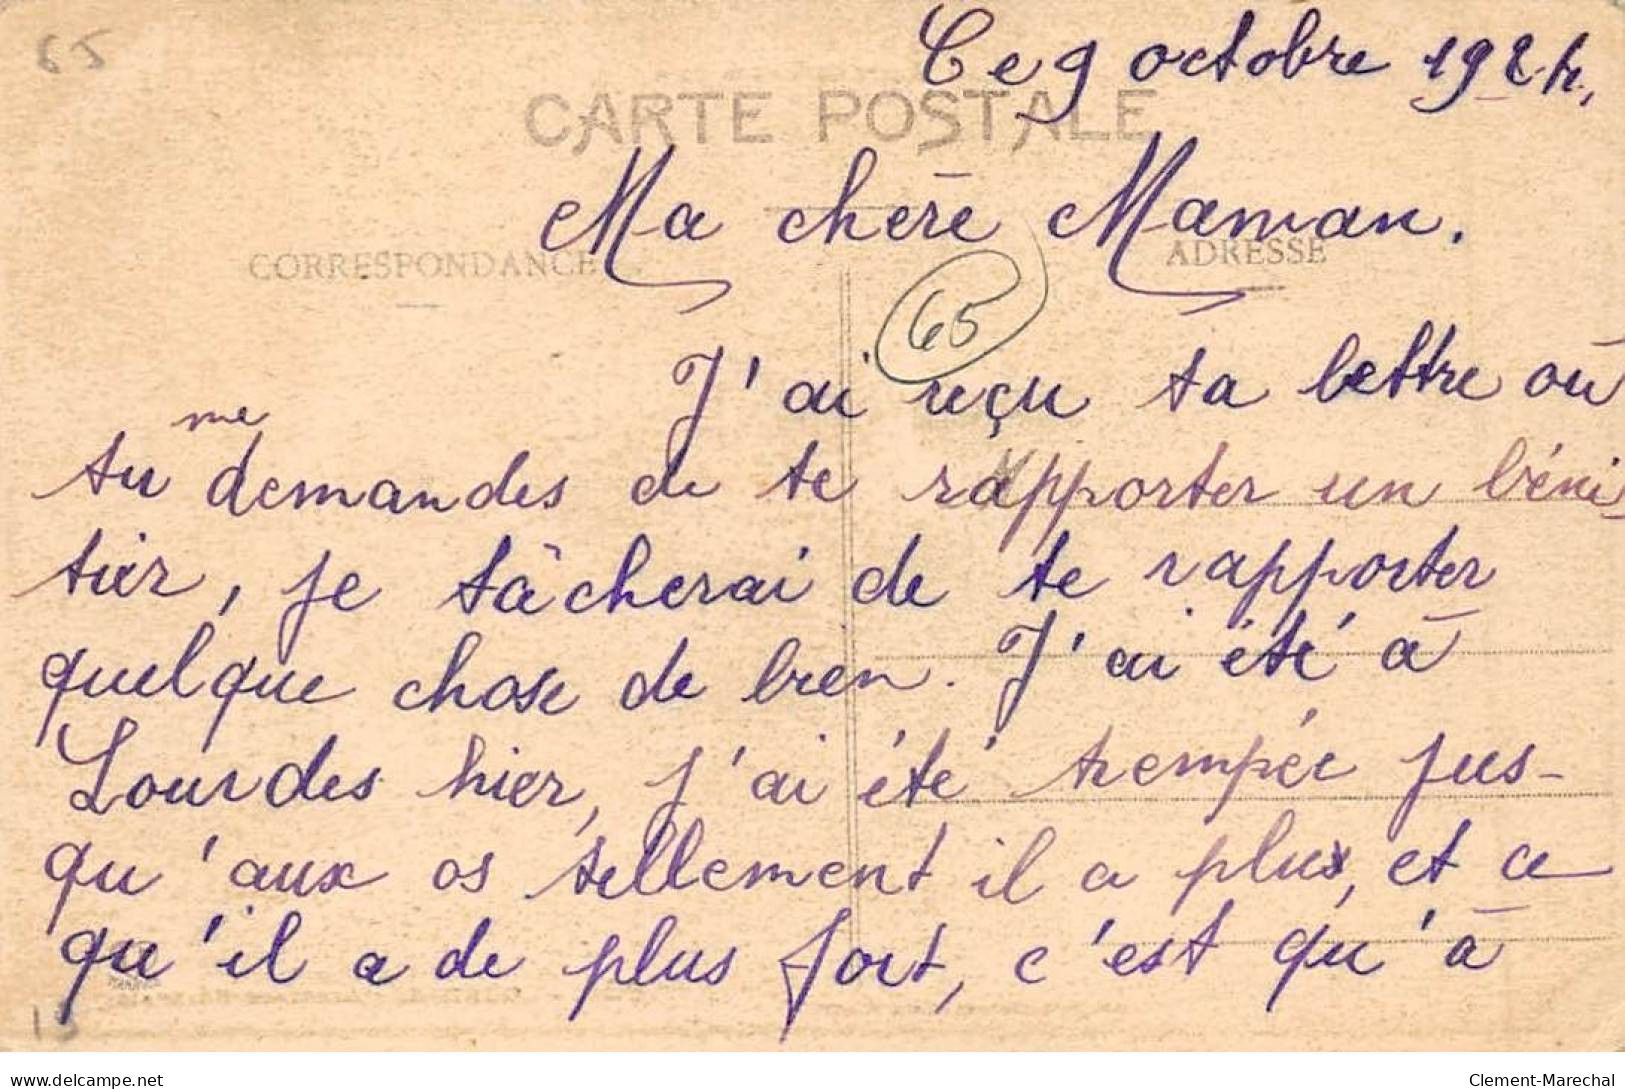 65
Ce 9 octobre 1924,
CARTE POSTALE
Ma chère Maman.
CORRESPONDANCE
ADRESSE
65
J'ai reçu ta lettre où
me
tu demandes de te rapporter un béni
tier, je tâcherai de te rapporter
quelque chose de bien. J'ai été à
Lourdes hier, j'ai été trempée jus-
qu'aux os tellement il a plu, et ce
qu'il a de plus fort, c'est qu'à
15
www.delcampe.net
Clement-Marechal